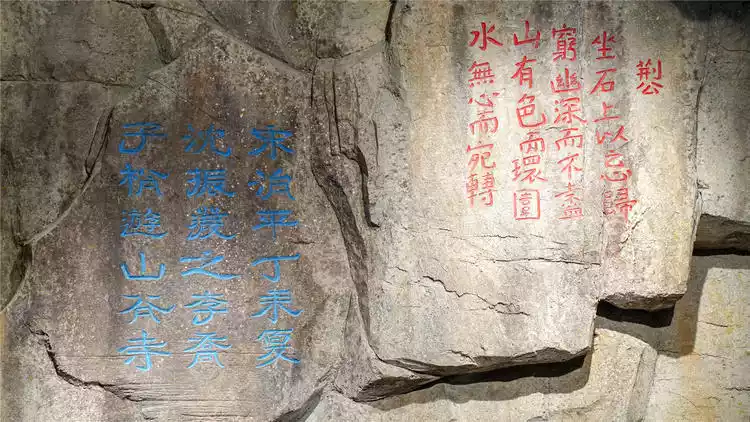 水無心而宛轉
山有色而環圍
窮幽深而不盡
坐石上以忘歸
荆公
宋治平丁未夏
沈振發之李喬
子裕遊山谷寺